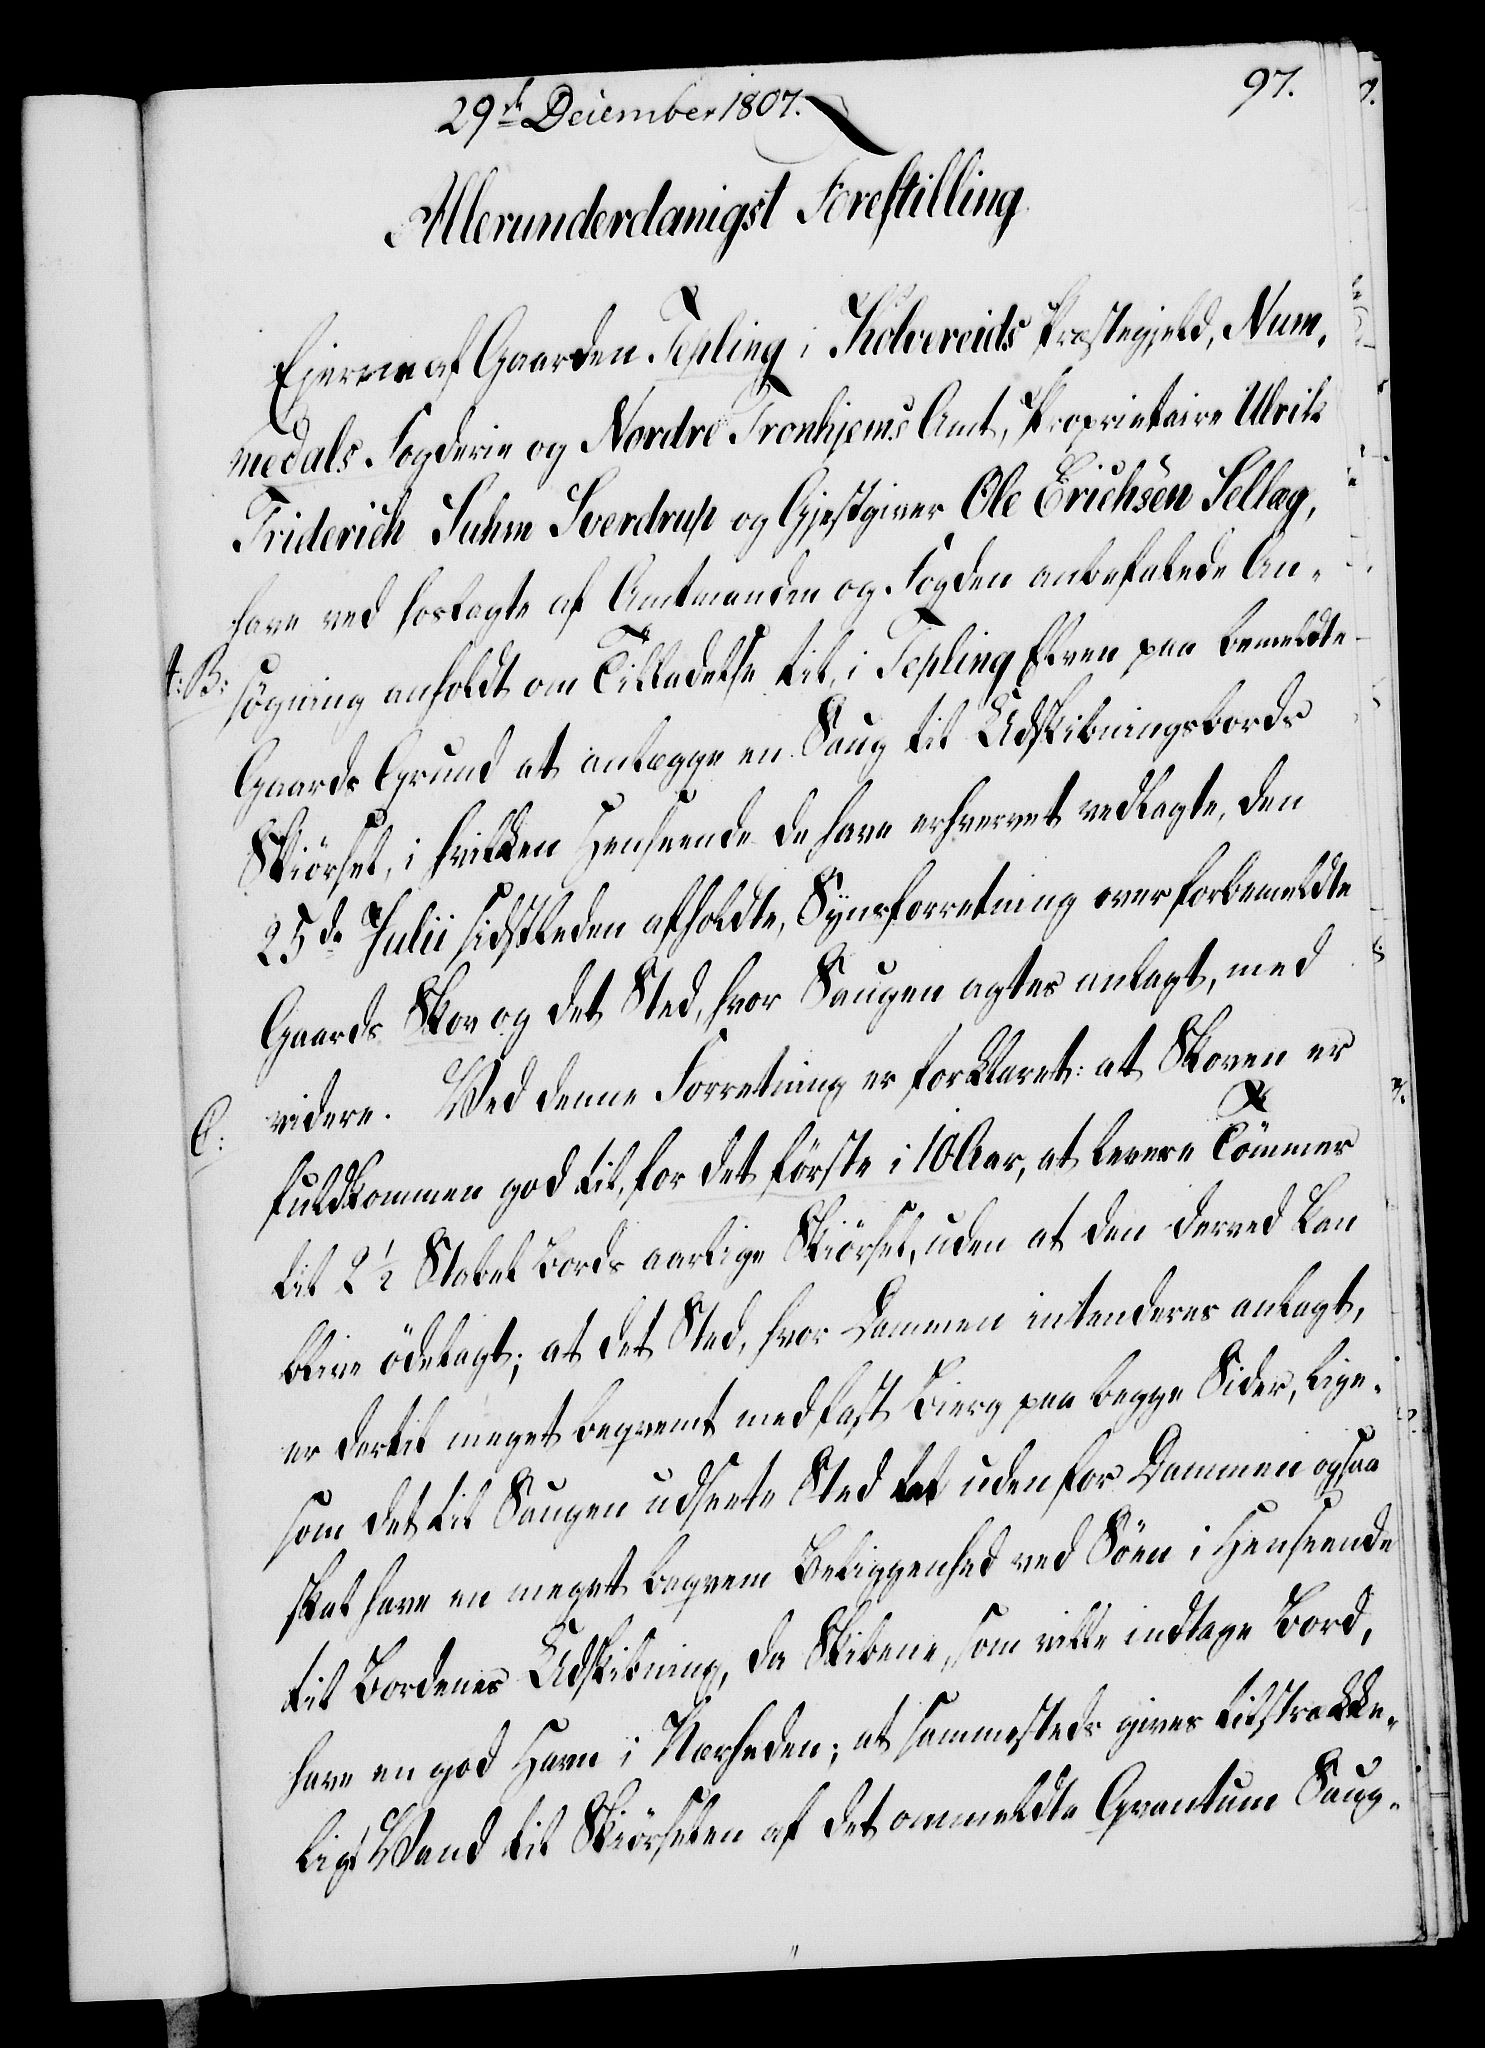 97.
29de December 1807.
Allerunderdanigst Forestilling
Ejerne af Gaarden Tepling i Kolvereids Præstegjeld, Num,
medals Fogderie og Nordre Tronhjems Amt, Proprietaire Ulrik
Friderich Suhm Sverdrup og Gjestgiver Ole Erichsen Sellæg,
have ved hoslagte af Amtmanden og Fogden anbefalede An-
A: B:
søgning anholdt om Tilladelse til, i Tepling Elven paa bemeldte
Gaards Grund at anlægge en Saug til Udskibningsbords
Skiørsel, i hvilken Henseende de have erhvervet vedlagte, den
25de Julii sidstleden afholdte, Synsforretning over forbemeldte
Gaards Skov og det Sted, hvor Saugen agtes anlagt, med
C:
videre. Ved denne Forretning er forklaret: at Skoven er
fuldkommen god til, for det første i 10 Aar, at levere Tømmer
til 2½ Stabel Bords aarlige Skiørsel, uden at den derved kan
blive ødelagt; at det Sted, hvor Dammen intenderes anlagt,
er dertil meget beqvemt med fast Bierg paa begge Sider, lige-
som det til Saugen udseete Sted tæt uden for Dammen ogsaa
skal have en meget beqvem Beliggenhed ved Søen i Henseende
til Bordenes Udskibning, da Skibene, som ville indtage Bord,
have en god Havn i Nærheden; at sammesteds gives tilstrække-
ligt Vand til Skiørselen af det ommeldte Qvantum Saug-